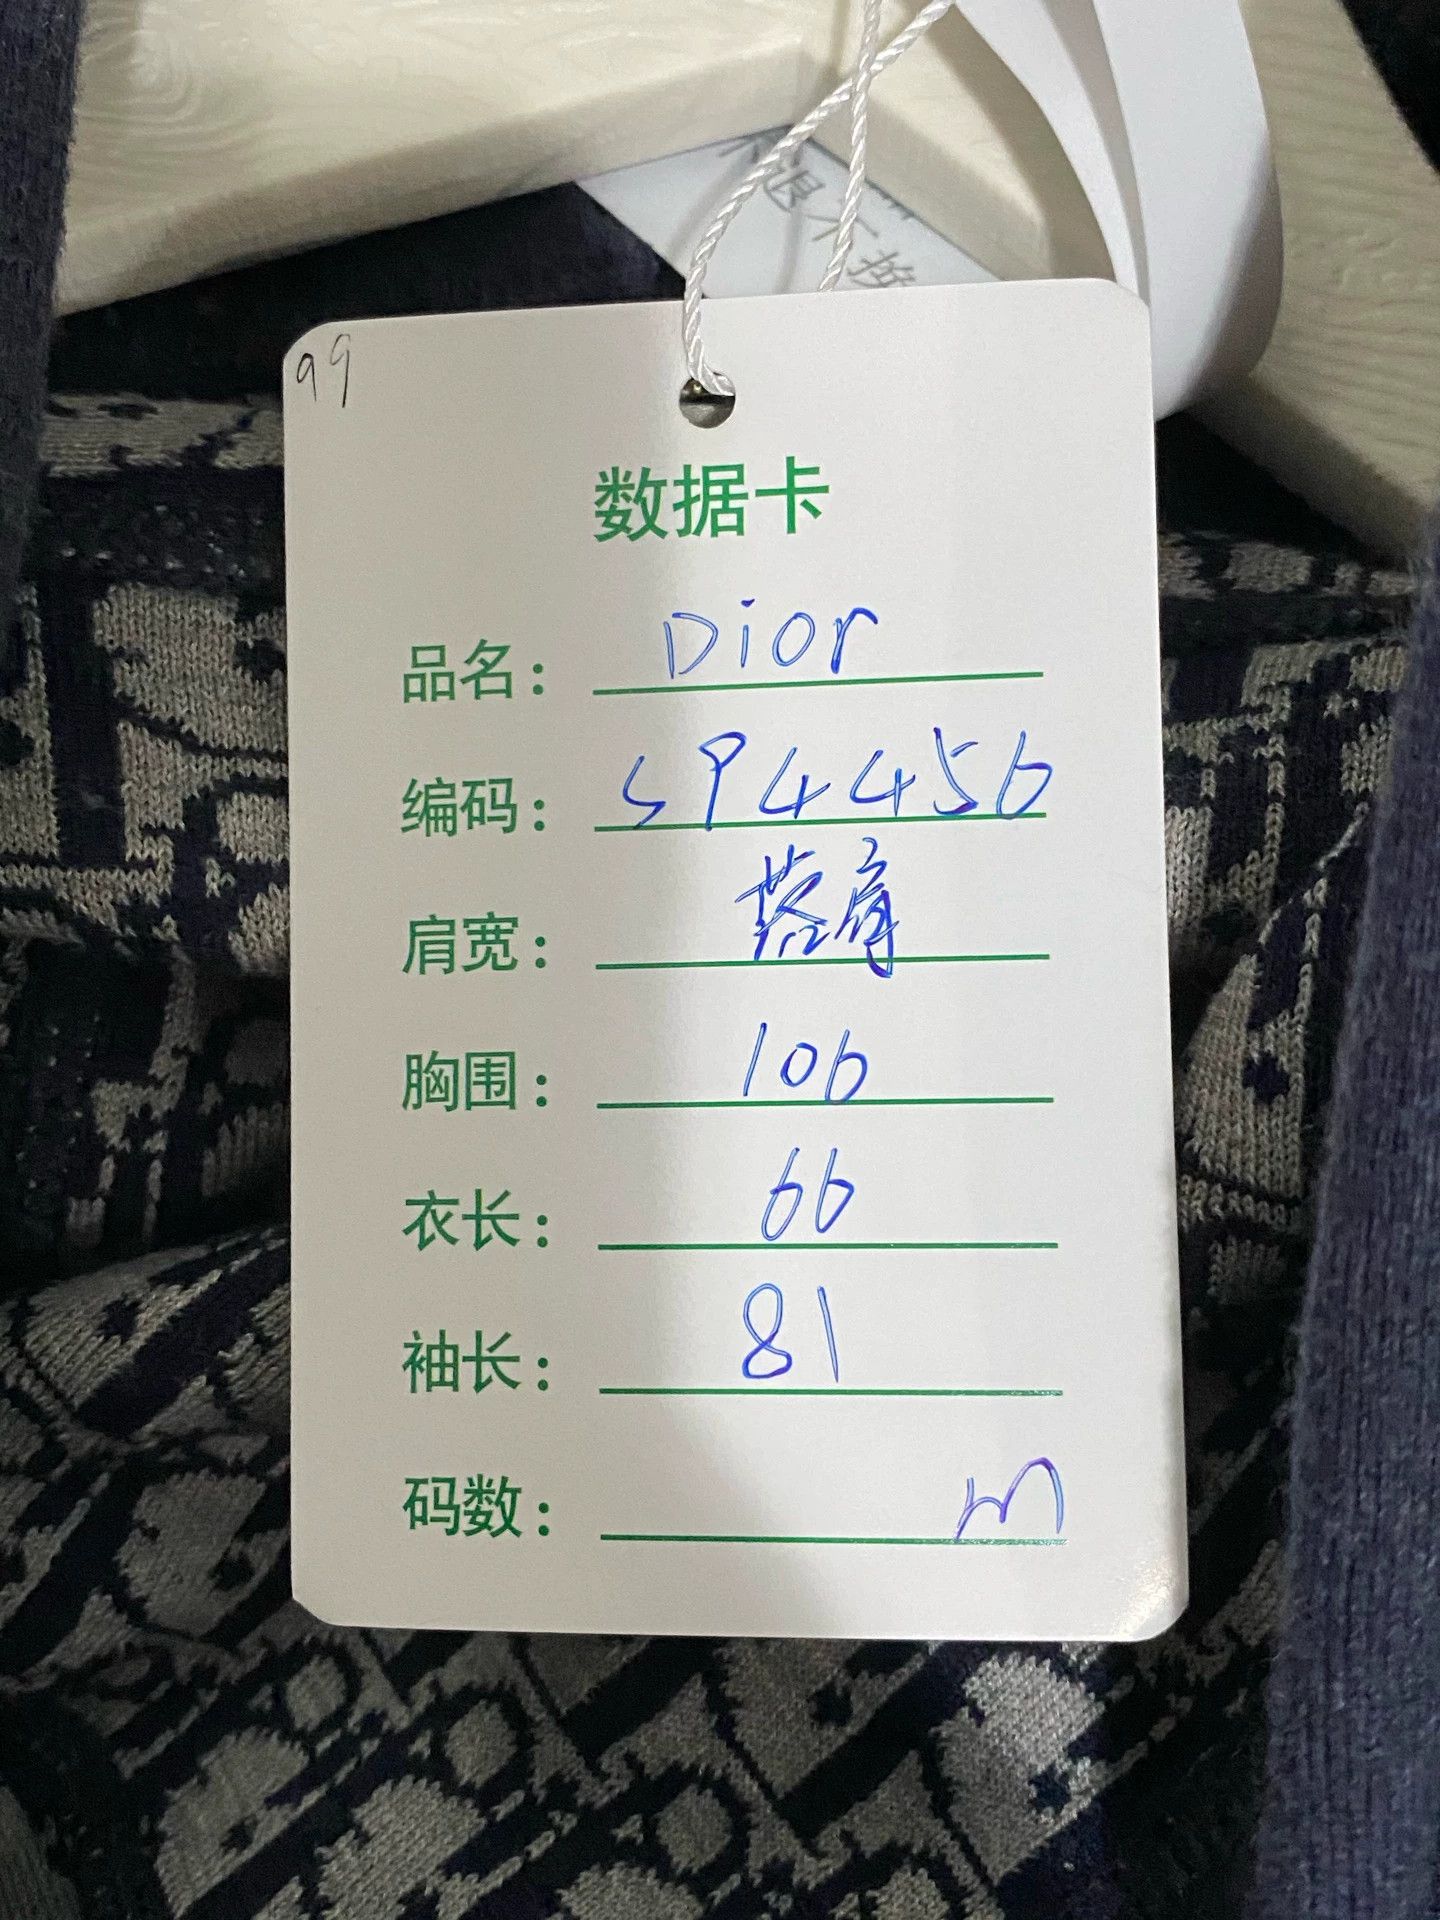 不退不换
99
数据卡
品名： Dior
编码： SP4456
肩宽： 落肩
胸围： 106
衣长： 66
袖长： 81
码数： m